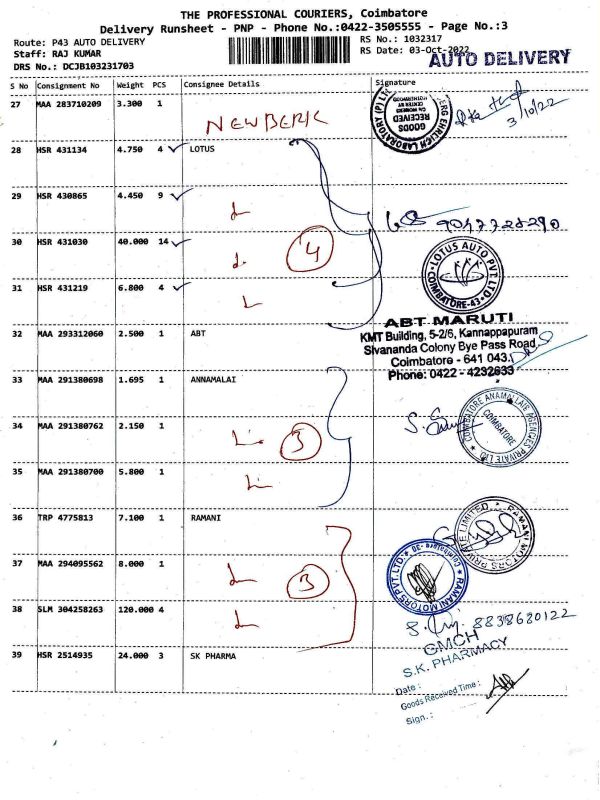 THE PROFESSIONAL COURIERS, Coimbatore
Delivery Runsheet - PNP - Phone No.:0422-3505555 - Page No.:3
Route: P43 AUTO DELIVERY
RS No.: 1032317
Staff: RAJ KUMAR
RS Date: 03-Oct-2022
AUTO DELIVERY
DRS No.: DCJB103231703
S No Consignment No Weight PCS Consignee Details Signature
27 MAA 283710209 3.300 1
NEWBERK
GOODS RECEIVED
3/10/22
28 HSR 431134 4.750 4 LOTUS
29 HSR 430865 4.450 9
30 HSR 431030 40.000 14
4
LOTUS AUTO PVT LTD
COIMBATORE-43
31 HSR 431219 6.800 4
ABT MARUTI
KMT Building, 5-2/6, Kannappapuram
Sivananda Colony Bye Pass Road
Coimbatore - 641 043.
Phone: 0422 - 4232633
32 MAA 293312060 2.500 1 ABT
33 MAA 291380698 1.695 1 ANNAMALAI
COIMBATORE ANAMALLAIS AGENCIES PRIVATE LTD
COIMBATORE
34 MAA 291380762 2.150 1
3
35 MAA 291380700 5.800 1
36 TRP 4775813 7.100 1 RAMANI
RAMANI MOTORS PRIVATE LIMITED
37 MAA 294095562 8.000 1
3
RAMANI MOTORS PVT. LTD.
38 SLM 304258263 120.000 4
8838680122
GMCH
S.K. PHARMACY
39 HSR 2514935 24.000 3 SK PHARMA
Date :
Goods Received Time :
Sign. :